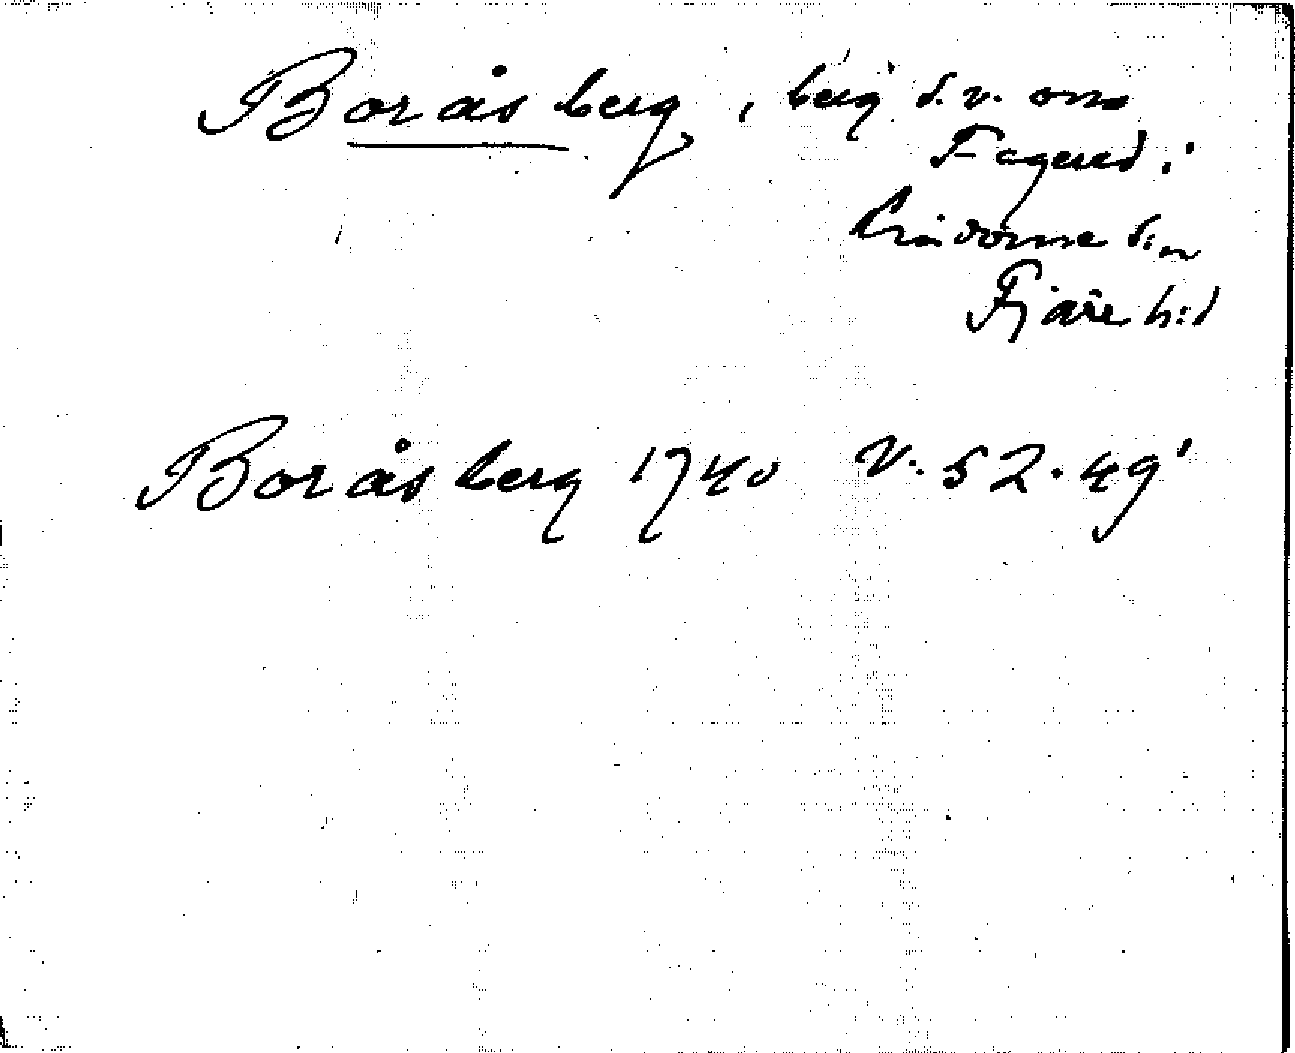 Boråsberg, berg s.v. om
Fagered i
Lindome sn
Fjäre h:d
Boråsberg 1740 V. 52. 49'